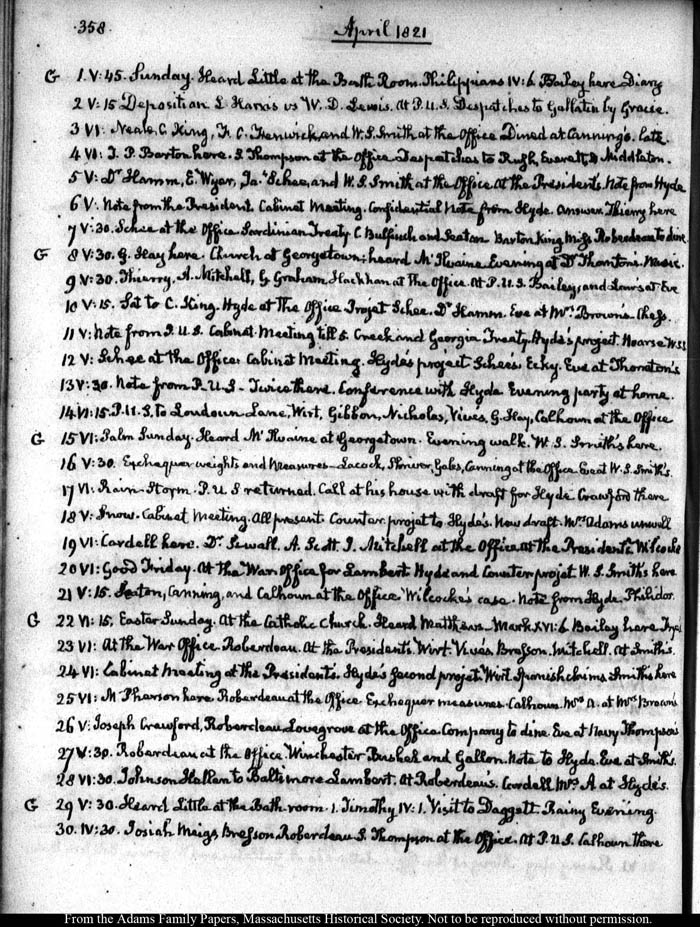 358.
April 1821
G 1. V: 45. Sunday. Heard Little at the Bath Room. Philippians IV: 6 Bailey here Diary
2 V: 15 Deposition L Harris vs W. D. Lewis. At P.U.S. Despatches to Gallatin by Gracie.
3 VI: Neale, C. King, F. C. Fenwick, and W. S. Smith at the Office Dined at Canning's. late.
4 VI: T. P. Barton here. S Thompson at the Office Despatches to Rush, Everett & Middleton.
5 V: Dr Hamm, E. Wyer, Ja. Schee, and W. S. Smith at the Office At the President's. Note from Hyde
6 V: Note from the President. Cabinet Meeting. Confidential Note from Hyde. Answer. Thierry here
7 V: 30. Schee at the Office Sardinian Treaty C. Bulfinch and Seaton Barton King Miss Roberdeau to dine
G 8 V: 30. G. Hay here. Church at Georgetown; heard McIlvaine Evening at Dr Thornton's. Music.
9 V: 30. Thierry, A. Mitchell, G. Graham, at the Office. At P.U.S. Bailey, and Laws at Eve
10 V: 15. Sat to C. King. Hyde at the Office Projet Schee. Dr Hamm. Eve at Mrs Brown's Chess.
11 V: Note from P.U.S. Cabinet Meeting till 5. Creek and Georgia Treaty. Hyde's project. Hoarse W.S.S
12 V: Schee at the Office: Cabinet Meeting. Hyde's project Schee's. Ecky. Eve at Thornton's
13 V: 30. Note from P.U.S - Twice there. Conference with Hyde Evening party at home.
14 VI: 15. P.U.S. to Loudoun Lane, Wirt, Gibbon, Nicholas, Vivés, G. Hay, Calhoun at the Office
G 15 VI: Palm Sunday. Heard McIlvaine at Georgetown. Evening walk. W. S. Smith's here.
16 V: 30. Exchequer weights and Measures - Lacock, Gales, Canning at the Office. Eve at W. S. Smith's.
17 VI. Rain-Storm. P.U.S returned. Call at his house with draft for Hyde Crawford there
18 V: Snow. Cabinet Meeting. All present. Counter projet to Hyde's. New draft. Mrs Adams unwell
19 VI: Cardell here. Dr. Sewall, A. Scott J. Mitchell at the Office. At the President's Wilcocke
20 VI: Good Friday. At the War Office for Lambert Hyde and Counter projet W. S. Smith's here
21 V: 15. Seaton, Canning, and Calhoun at the Office Wilcocke's case. Note from Hyde. Philidor.
G 22 VI: 15, Easter Sunday. At the Catholic Church. Heard Matthews. Mark XVI: 6 Bailey here
23 VI: At the War Office. Roberdeau. At the President's. Wirt. Vivés Bresson. Mitchell. At Smith's.
24 VI: Cabinet Meeting at the President's. Hyde's second projet. Wirt Spanish claims Smiths here
25 VI: McPherson here Roberdeau at the Office. Exchequer measures. Calhoun. Mrs A. at Mrs Brown's
26 V: Joseph Crawford, Roberdeau, Lovegrove at the Office. Company to dine. Eve at Navy Thompson's
27 V: 30. Roberdeau at the Office Winchester Bushel and Gallon. Note to Hyde. Eve at Smith's.
28 VI: 30. Johnson Hellen to Baltimore Lambert. At Roberdeau's. Cardell Mrs A at Hyde's.
G 29 V: 30. Heard Little at the Bath-room. 1. Timothy IV: 1. Visit to Daggett Rainy Evening.
30. IV: 30. Josiah Meigs, Bresson, Roberdeau, S. Thompson at the Office. At P.U.S. Calhoun there
From the Adams Family Papers, Massachusetts Historical Society. Not to be reproduced without permission.